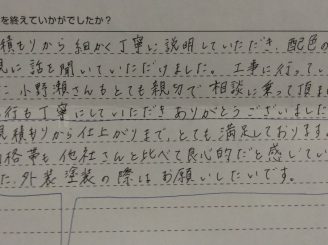 を終えていかがでしたか？
積もりから細かく丁寧に説明していただき、配色の
に話を聞いていただけました。工事に行ってい
小野瀬さんもとても親切で相談に乗って頂ま
行も丁寧にしていただきありがとうございました
見積もりから仕上がりまで、とても満足しております
価格帯も他社さんと比べて良心的だと感じてい
た。外装塗装の際はお願いしたいです。